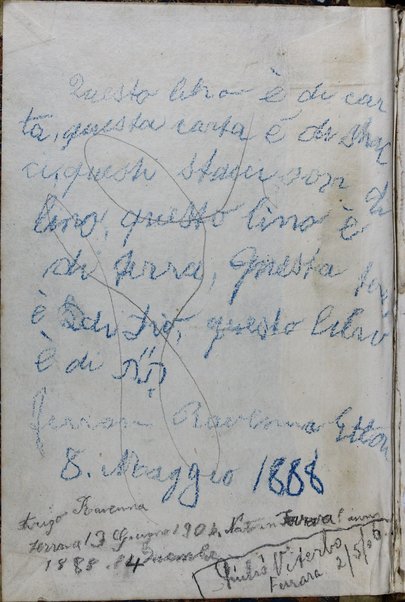 Questo libro è di car
ta, questa carta è di strac
ci, questi stracci son di
lino, questo lino è
di terra, questa ter
è di Dio, questo libro
è di
Ferrara Ravenna Ettor
8. Maggio 1888
Arrigo Ravenna
Ferrara 13 Giugno 1904. Nato in Ferrara l'anno
1888. 14
Giulio Viterbo
Ferrara 2/5/06